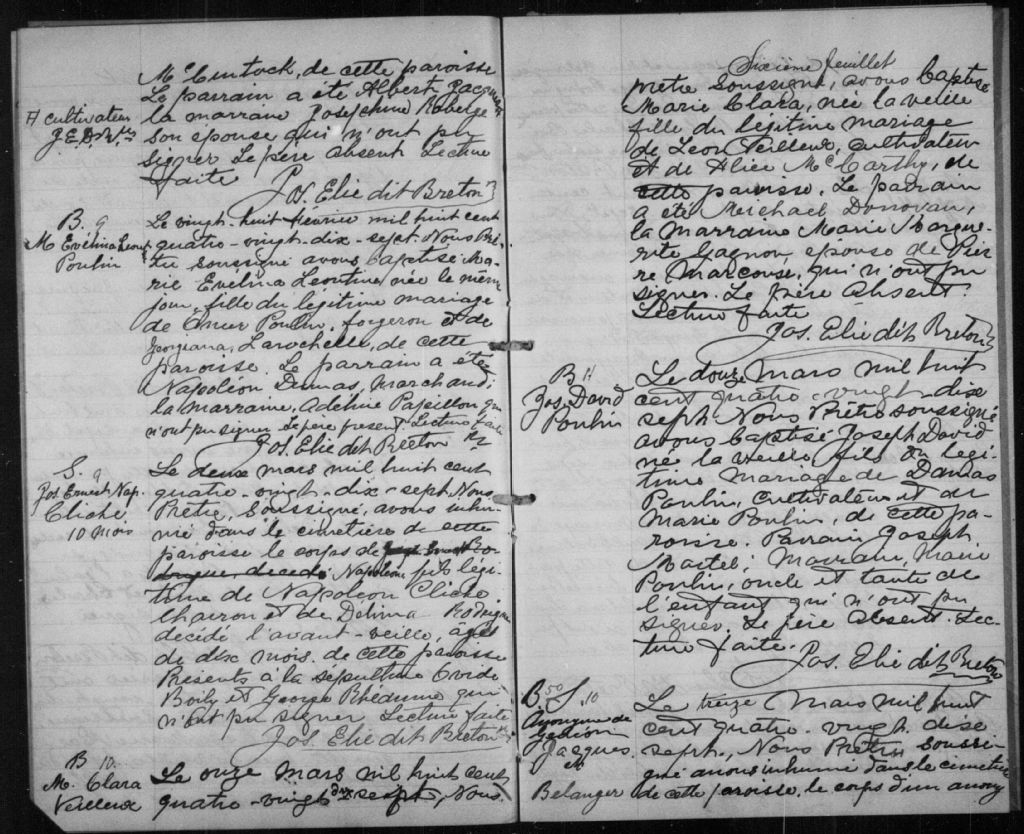 Mc Lintock, de cette paroisse
Le parrain a été Albert Jacques
la marraine Josephine Roberge
son épouse qui n'ont pu
signer Le père absent Lecture
faite
Jos. Elie dit Breton Ptr
# cultivateur
J.E.D.B. Ptr
B. 9
M Evélina Leont.
Poulin
Le vingt-huit fevrier mil huit cent
quatre-vingt-dix-sept. Nous Prê-
tre soussigné avons baptisé Ma-
rie Evelina Leontine née le même
jour, fille du légitime mariage
de Omer Poulin, forgeron et de
Georgiana, Larochelle, de cette
paroisse. Le parrain a été
Napoléon Dumas, marchand
la marraine, Adeline Papillon qui
n'ont pu signer Le père présent Lecture faite
Jos. Elie dit Breton Ptr
S. 9
Jos Ernest Nap.
Cliche
10 mois
Le deux mars mil huit cent
quatre-vingt-dix-sept, Nous
Prêtre, soussigné, avons inhu-
mé dans le cimetière de cette
paroisse le corps de
Napoléon fils légi-
time de Napoléon Cliche
charron et de Delima Rodrigue
décédé l'avant-veille, âgé
de dix mois. de cette paroisse
Présents à la sépulture Ovide
Boily et George Rhéaume qui
n'ont pu signer Lecture faite
Jos. Elie dit Breton Ptr
B 10.
M. Clara
Veilleux
Le onze mars mil huit cent
quatre-vingt dix sept, Nous
Sixième feuillet
prêtre soussigné, avons baptisé
Marie Clara, née la veille
fille du légitime mariage
de Léon Veilleux, cultivateur
et de Alice Mc Carthy, de
cette paroisse. Le parrain
a été Michael Donovan,
la marraine Marie Margue-
rite Gagnon, épouse de Pier
re Marcoux, qui n'ont pu
signer. Le père absent.
Lecture faite
Jos. Elie dit Breton Ptr
B 11
Jos. David
Poulin
Le douze mars mil huit
cent quatre-vingt dix
sept. Nous Prêtre soussigné
avons baptisé Joseph David
né la veille fils du légi-
time mariage de Damas
Poulin, cultivateur et de
Marie Poulin, de cette pa-
roisse. Parrain Joseph
Martel; Marraine, Marie
Poulin, oncle et tante de
l'enfant qui n'ont pu
signer. Le père absent. Lec-
ture faite.
Jos. Elie dit Breton
S. 10
Anonyme de
Gédéon
Jacques
et
Belanger
Le treize mars mil huit
cent quatre-vingt dix
sept, Nous Prêtre soussi-
gné avons inhumé dans le cimetière
de cette paroisse, le corps d'un anony